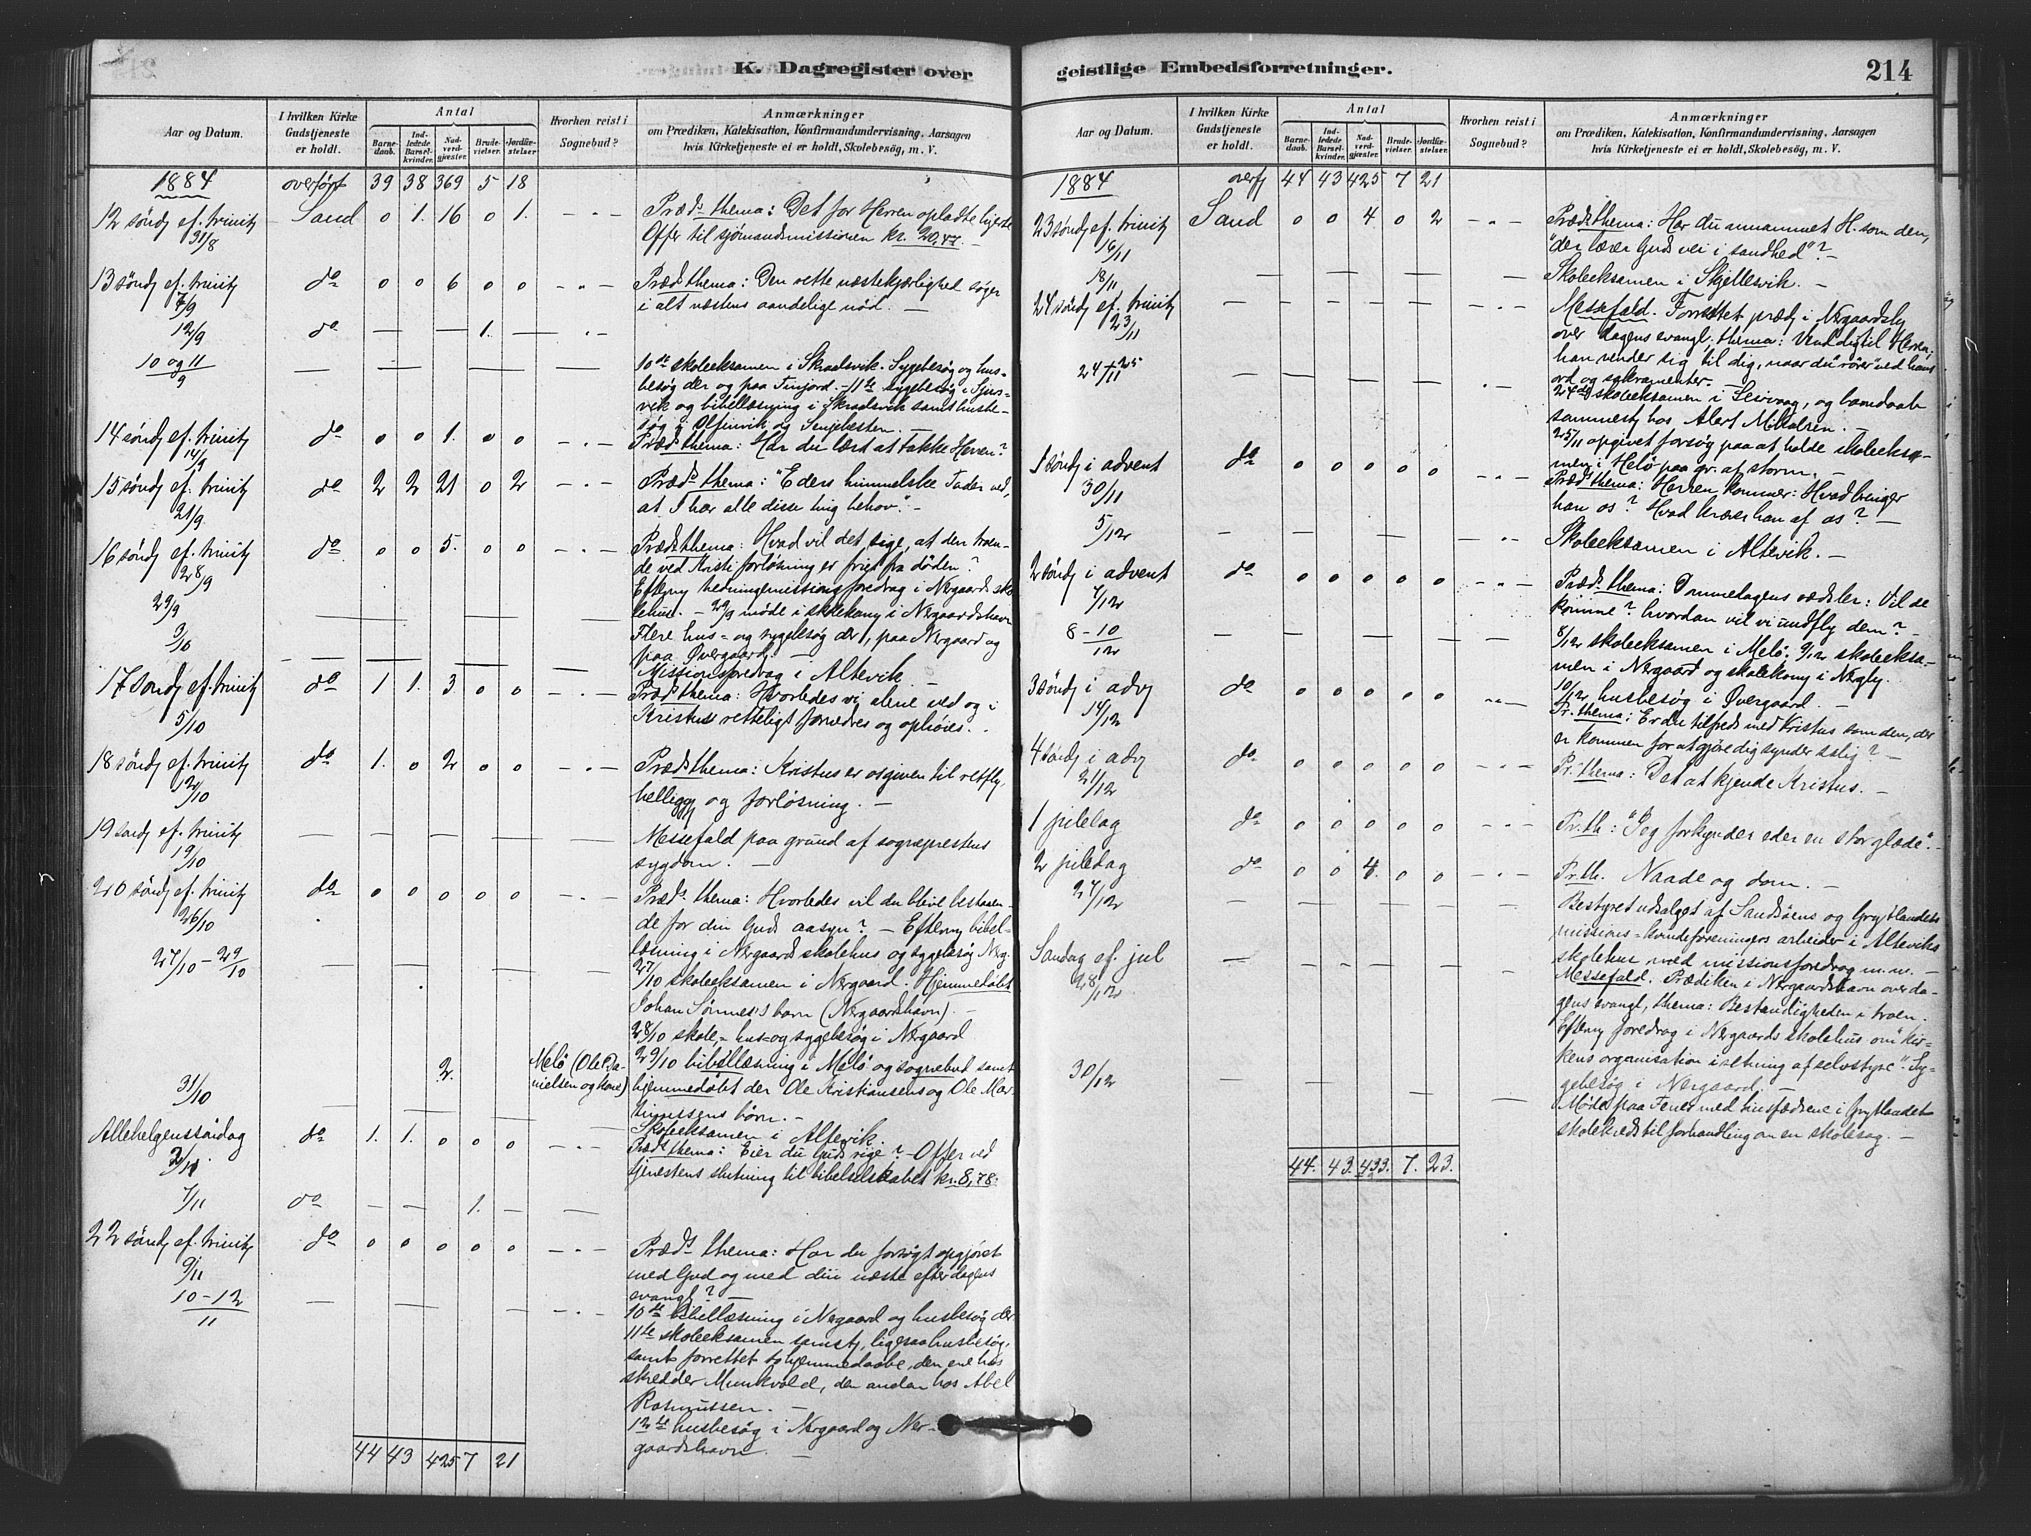 K. Dagregister over
Aar og Datum.
I hvilken Kirke Gudstjeneste er holdt.
Antal
Barnedaab.
Indledede Barselkvinder.
Nadverdgjæster.
Brudevielser.
Jordfæstelser.
Hvorhen reist i Sognebud?
Anmærkninger
om Prædiken, Katekisation, Konfirmandundervisning, Aarsagen
hvis Kirketjeneste ei er holdt, Skolebesøg, m. V.
1884 overført 39 38 369 5 18
12 søndg ef. trinitg Sand 0 1. 16 0 1. Præds thema: Det for Herren opladte hjerte
31/8 Offer til sjømandsmissionen kr. 20,47.
13 søndg ef. trinitg do 0 0 6 0 0 Præds thema: Den rette næstekjærlighed søger
7/9 i alt næstens aandelige nød.
12/9 do 1.
10 og 11/9 10de skoleeksamen i Skradsvik. Sygebesøg og hus-
besøg der og paa Finjord. 11te sygebesøg i
vik og bibellæsning i Skradsvik samt husbe-
søg i Olfinvik og
14 søndg ef. trinitg do 0 0 1. 0 0 Præds thema: Har du lært at takke Herren?
14/9
15 søndg ef. trinitg do 2 2 21 0 2 Præds thema: "Eders himmelske Fader ved,
21/9 at I har alle disse ting behov."
16 søndg ef. trinitg do 0 0 5. 0 0 Præds thema: Hvad vil det sige, at den troen-
28/9 de ved Kristi forløsning er friet fra døden?
Efterng hedningemissionsforedrag i Nergaards sko-
29/9 lehus. 29/9 møde i skolekomg i Nergaardshavn
3/10 Flere hus- og sygebesøg der, paa Nergaard og
paa Øvergaard.
Missionsforedrag i Altevik.
17 søndg ef. trinitg do 1 1. 3 0 0 Præds thema: Hvorledes vi alene ved og i
5/10 Kristus retteligt fornedres og ophøies.
18 søndg ef. trinitg do 1. 0 2 0 0 Præds thema: Kristus er os given til retfg,
12/10 helligg og forløsning.
19 søndg ef. trinitg Messefald paa grund af sogneprestens
19/10 sygdom.
20 søndg ef. trinitg do 0 0 0 0 0 Præds thema: Hvorledes vil du blive bestaaen-
26/10 de for din Guds aasyn? Efterng bibel-
læsning i Nergaards skolehus og sygebesøg Nerg.
27/10 - 29/10 27/10 skoleeksamen i Nergaard. Hjemmedøbt
Johan Sørnes's barn (Nergaardshavn).
28/10 skole,- hus- og sygebesøg i Nergaard
2. Melø (Ole Da- 29/10 bibellæsning i Melø og sognebud samt
nielsen og kone) hjemmedøbt der Ole Kristiansens og Ole Mar-
tinussens børn.
31/10 Skoleeksamen i Altevik.
Allehelgenssøndag do 1. 1. 0 0 0 Præds thema: Eier du Guds rige? Offer ved
2/11 tjenestens slutning til bibelselskabet kr. 8,78.
7/11 do 1.
22 søndg ef. trinitg do 0 0 0 0 0 Præds thema: Har du forsøgt opgjøret
9/11 med Gud og med din næste efter dagens
evangl?
10-12/11 10de bibellæsning i Nergaard og husbesøg der
11te skoleeksamen samstg, ligesaa husbesøg,
samt forrettet to hjemmedaabe, den ene hos
skredder Munkvold, den anden hos Abel
Rasmussen.
12te husbesøg i Nergaard og Ner-
gaardshavn.
44 43 425 7 21
geistlige Embedsforretninger.
214
Aar og Datum.
I hvilken Kirke Gudstjeneste er holdt.
Antal
Barnedaab.
Indledede Barselkvinder.
Nadverdgjæster.
Brudevielser.
Jordfæstelser.
Hvorhen reist i Sognebud?
Anmærkninger
om Prædiken, Katekisation, Konfirmandundervisning, Aarsagen
hvis Kirketjeneste ei er holdt, Skolebesøg, m. V.
1884 overf 44 43 425 7 21
23 søndg ef. trinitg Sand 0 0 4 0 2 Præds thema: Har du annammet H. som den,
16/11 "der lærer Guds vei i sandhed"?
18/11 Skoleeksamen i Skjellesvik.
24 søndg ef. trinitg Messefald. Forrettet prædg i Nergaardslg
23/11 over dagens evangl; thema: Vend dig til Herren;
han vender sig til dig, naar du "rører" ved hans
ord og sakramenter.
24 + 25/11 24de skoleeksamen i Leirvaag, og barnedaab
sammestg hos Alert Mikkelsen.
25/11 opgivet forsøg paa at holde skoleeksa-
men i Melø paa gr. af storm.
1 søndg i advent do 0 0 0 0 0 Præds thema: Herren kommer: Hvad bringer
30/11 han os? Hvad kræver han af os?
5/12 Skoleeksamen i Altevik.
2 søndg i advent do 0 0 0 0 0 Præds thema: Dommedagens rædsler: Vil de
7/12 komme? hvordan vil vi undfly dem?
8-10/12 8/12 skoleeksamen i Melø. 9/12 skoleeksa-
men i Nergaard og skolekomg i Nerglg.
10/12 husbesøg i Øvergaard.
3 søndg i advg do 0 0 0 0 0 Pr. thema: Er du tilfreds med Kristus som den, der
14/12 er kommen for at gjøre dig synder salig?
4 søndg i advg do 0 0 0 0 0 Pr. thema: Det at kjende Kristus.
21/12
1 juledag do 0 0 0 0 0 Pr. th: "Jeg forkynder eder en stor glæde".
2 juledag do 0 0 4. 0 0 Pr. th. Naade og dom.
27/12 Bestyret udsalget af Sandsøens og Grytlandets
missions-kvindeforeningers arbeider i Alteviks
skolehus med missionsforedrag m.m.
Søndag ef. jul Messefald. Prædiken i Nergaardshavn over da-
28/12 gens evangl, thema: Bestandigheden i troen.
Efterng foredrag i Nergaards skolehus om "kir-
kens organisation i retning af selvstyre". Sy-
gebesøg i Nergaard.
30/12 Møde paa Fenes med husfædrene i Grytlandets
skolekreds til forhandling om en skolesag.
44. 43. 433. 7. 23.